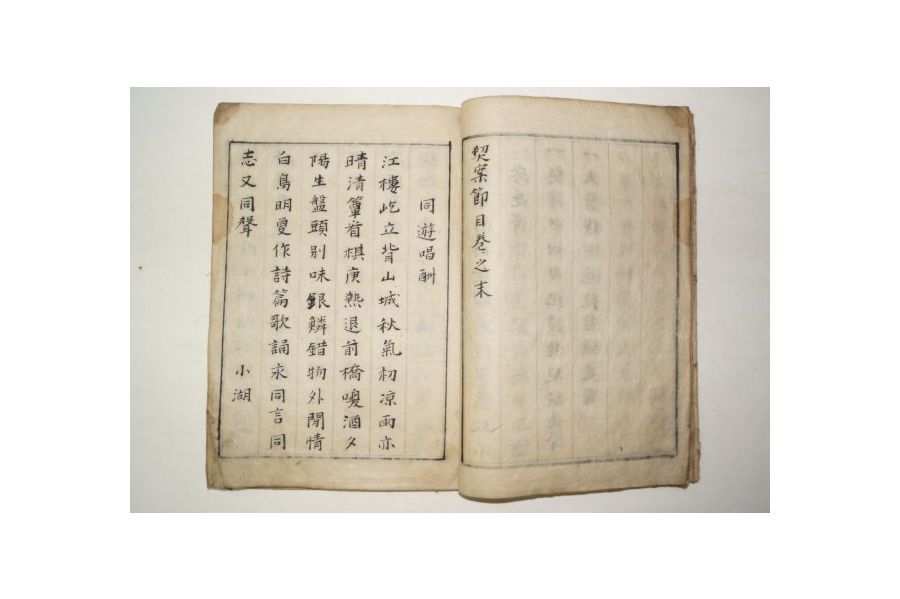 契案節目卷之末
同遊唱酬
江樓屹立背山城秋氣初凉雨亦
晴清簟看棋庚熱退前橋嗄酒夕
陽生盤頭別味銀鱗錯物外閒情
白鳥明更作詩篇歌誦求同言同
志又同聲 小湖